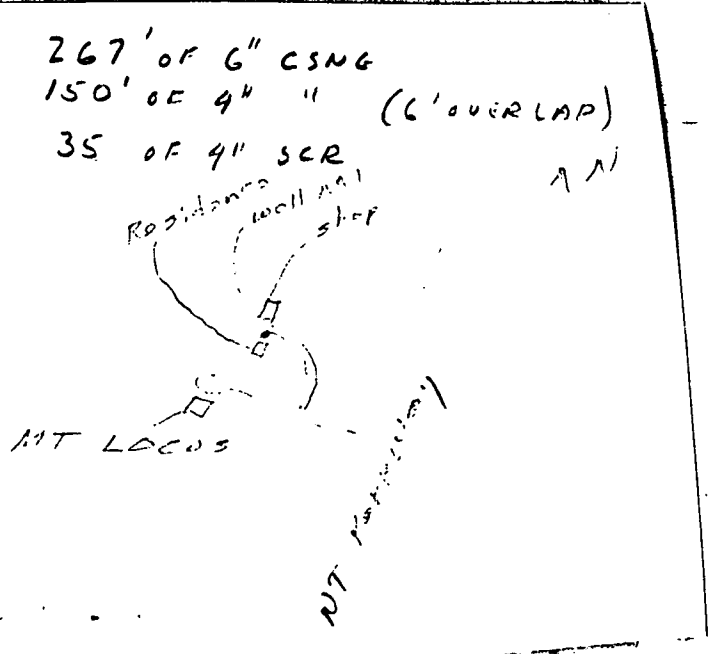 267' OF 6" CSNG
150' OF 4" " (6' OVERLAP)
35 OF 4" SCR
N
Residence
well
shop
MT LOCUS
NT